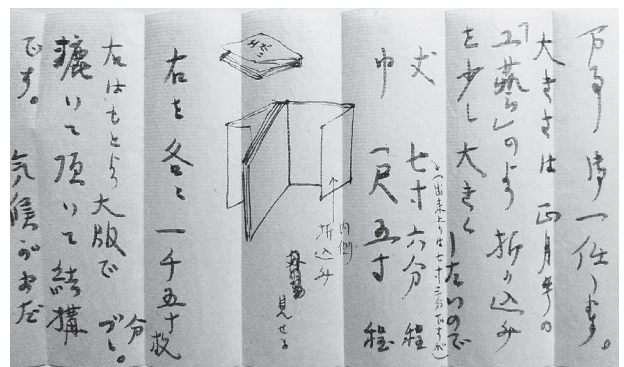 万事御一任します。
大きさは正月号の
『工藝』のより折り込み
を少し大きくしたいので
丈 七寸六分 程
(出来上りは七寸三分ですが)
巾 一尺五寸 程
内側
折込み
見せる
右を各々一千五十枚
分
づゝ。
右はもとより大版で
漉いて頂いて結構
です。 気候がまだ